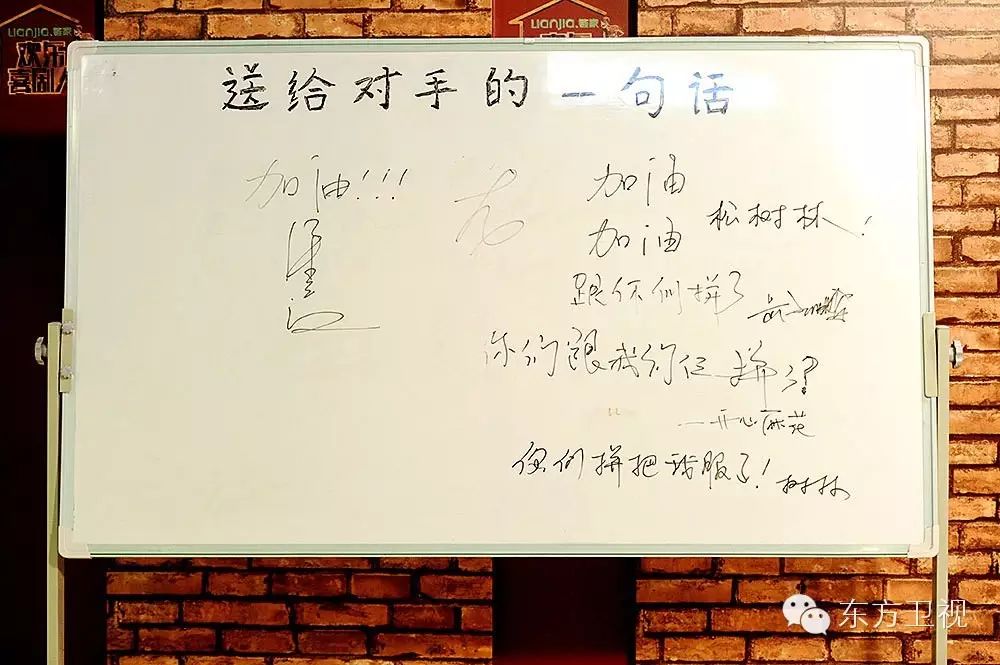 Lianjia.链家
欢乐
喜剧人
Lianjia.链家
送给对手的一句话
加油!!!
加油
加油 松树林!
跟你们拼了
你们跟我们仨拼了?
——开心麻花
你们拼把我服了! 树林
东方卫视